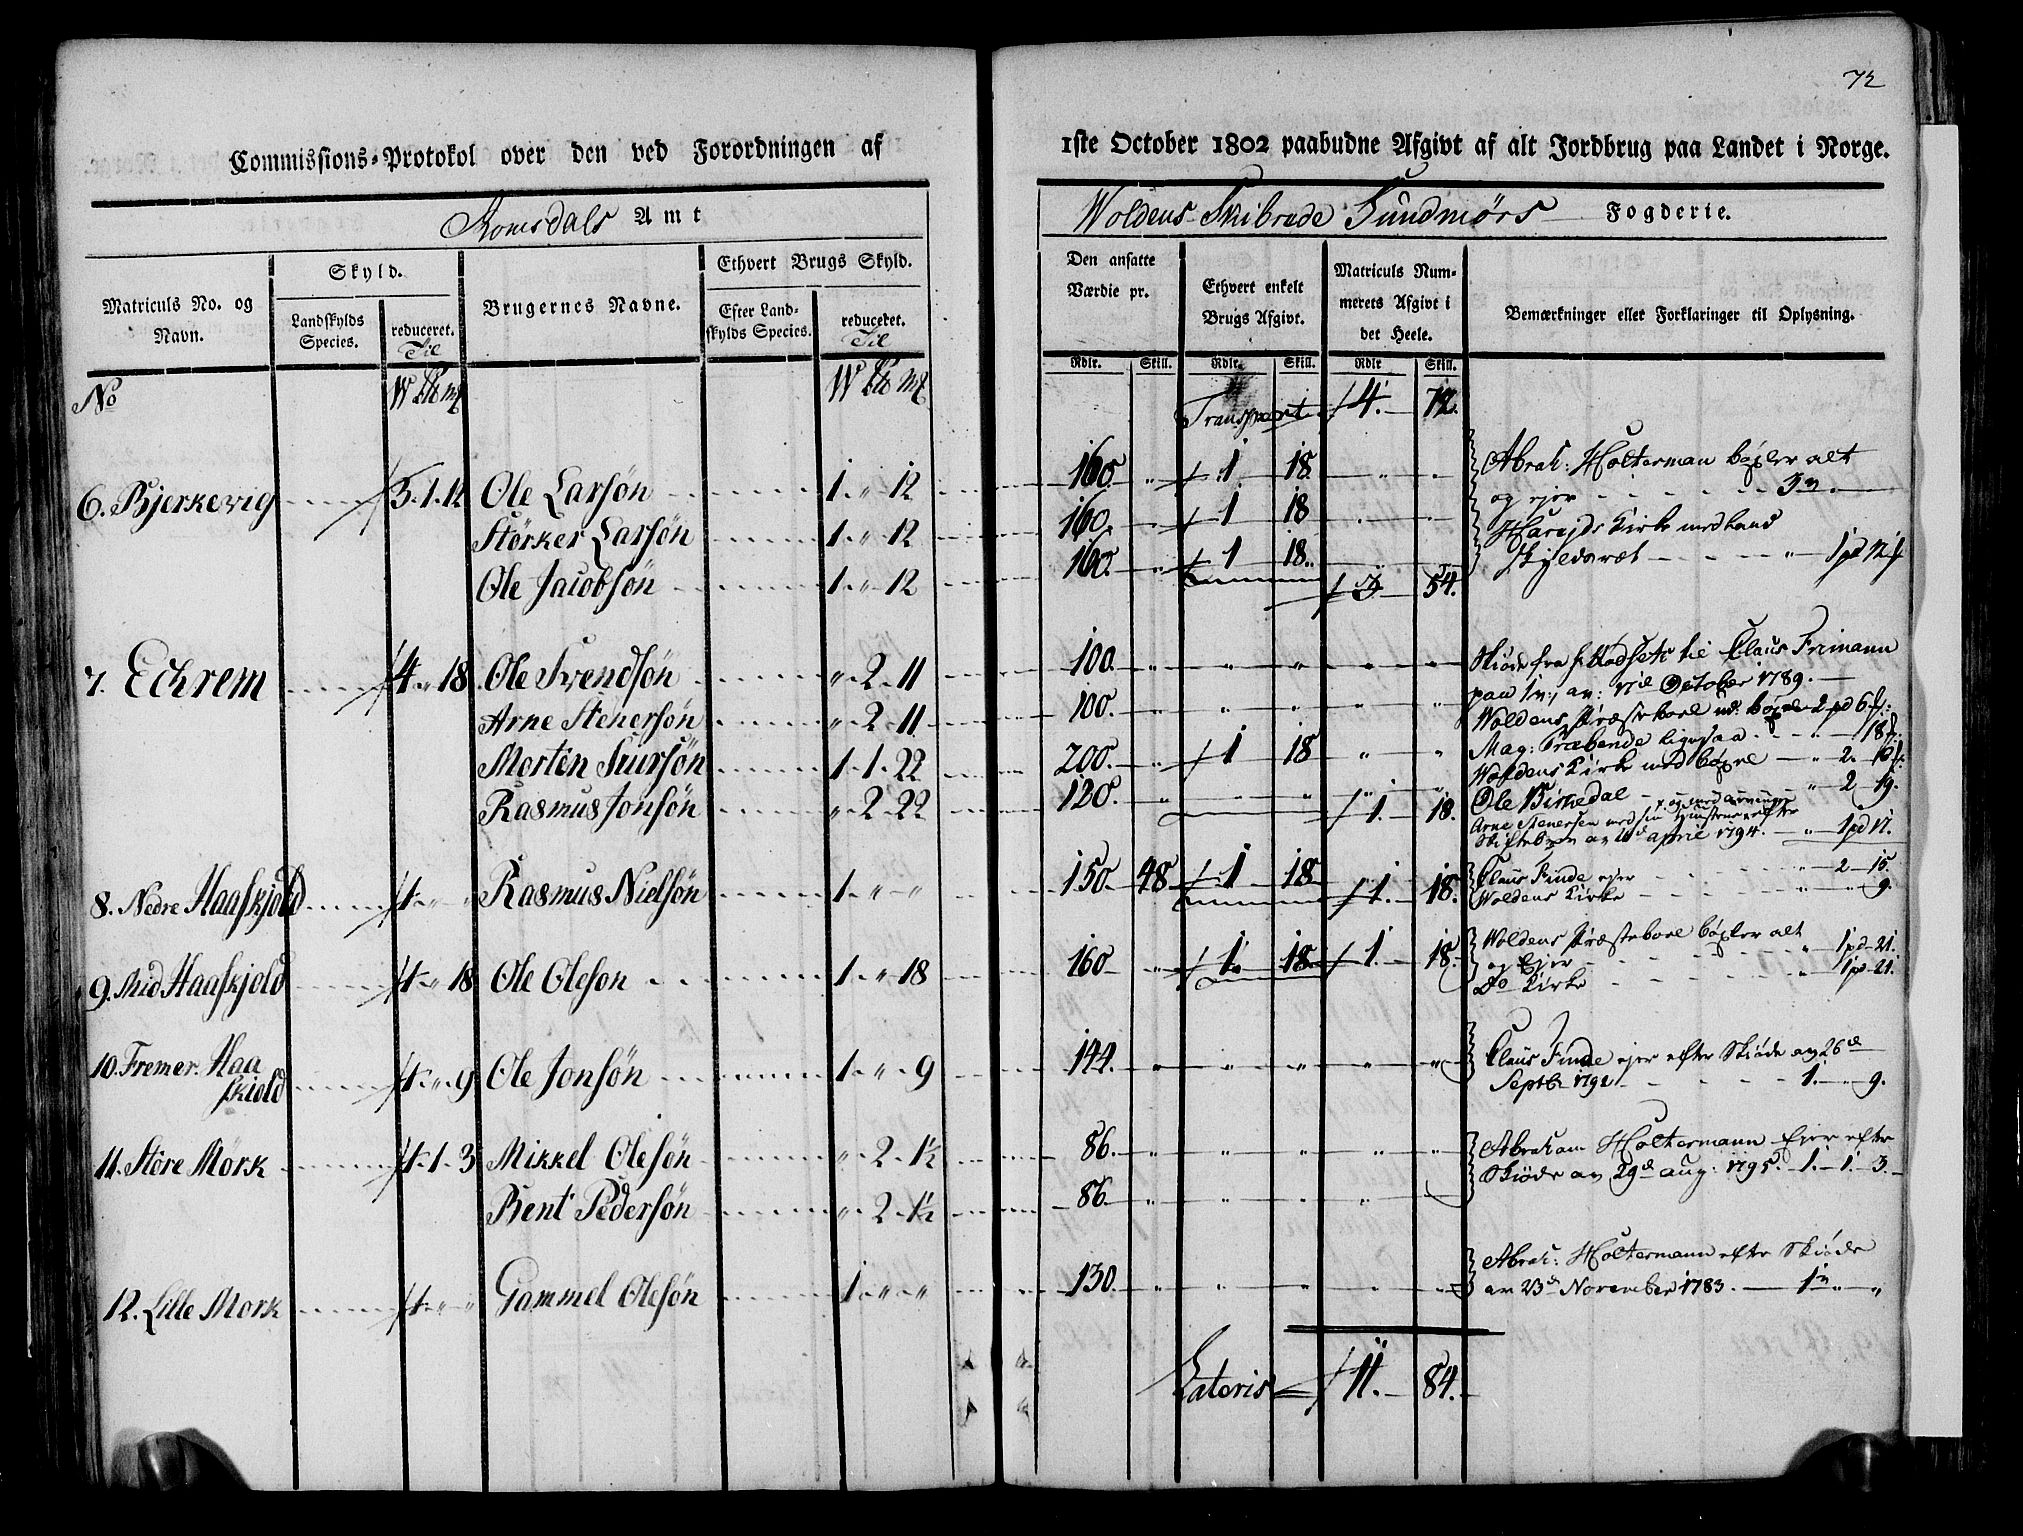 72
Commissions-Protokol over den ved Forordningen af
1ste October 1802 paabudne Afgivt af alt Jordbrug paa Landet i Norge.
Romsdals Amt
Woldens Skibrede Sundmørs Fogderie.
Matriculs No. og Navn.
Skyld.
Landskylds Species.
reduceret. Til
Brugernes Navne.
Ethvert Brugs Skyld.
Efter Landskylds Species.
reduceret. Til
Den ansatte Værdie pr.
Ethvert enkelt Brugs Afgivt.
Matriculs Nummerets Afgivt i det Heele.
Bemærkninger eller Forklaringer til Oplysning.
Rdlr. Skill. Rdlr. Skill. Rdlr Skill.
No W W
Transport 4. 72.
6. Bjerkevig 3. 1. 12 Ole Larsøn 1 " 12 160. " 1 18 " " Abrah: Holterman bøxler alt
og ejer 3 W.
Størker Larsøn 1 " 12 160. 1 18 " " Hareids Kirke med Land
Ole Jacobsøn 1 " 12 160. " 1 18. Skyldvaret " 1 pd 12
3 54.
7. Echrem 4 " 18 Ole Svendsøn " 2 11 100. " " " " " Skiøde fra til Claus Frimann
paa October 1789.
Arne Stenersøn " 2 11 100. " " " " " Woldens Præsteboel bøxle 2 pd 6
Mag: Præbende ligesaa 18
Morten 1 1 22 200. " 1 18 " " Woldens Kirke med bøxel " 2 16
Rasmus Jonsøn " 2 22 120. " " " 1. 18. Ole Birkedal " 2 19.
Arne Stenersen med sin
April 1794. " 1 pd 17.
8. Nedre Haaskjold 1 " " Rasmus Nielsøn 1 " " 150. 48 1 18 1. 18. Claus Finde ejer " 2 15
Woldens Kirke " " 9.
9. Mid Haaskjold 1 " 18 Ole Oleson 1 " 18 160 " 1. 18 1. 18. Woldens Præsteboel bøxler alt
og Ejer " 1 pd 21.
Do Kirke " 1 pd 21.
10. Fremer. Haa
skiold 1 " 9 Ole Jonsøn 1 " 9 144. " " " " " Claus Finde ejer efter Skiøde av 26de
Septbr 1792 1. " 9.
11. Store Mork 1. 1. 3 Mikkel Olesøn " 2. 1½ 86. " " " " " Abraham Holtermann Ejer efter
Skiøde av 29de Aug: 1795. 1. 1. 3.
Bent Pedersøn " 2 1½ 86. " " " "
12. Lille Mork 1 " " Gammel Olesøn 1 " " 130. " " " " " Abrah: Holtermann efter Skiøde
av 23de November 1783. 1 W " "
Lateris 11. 84.